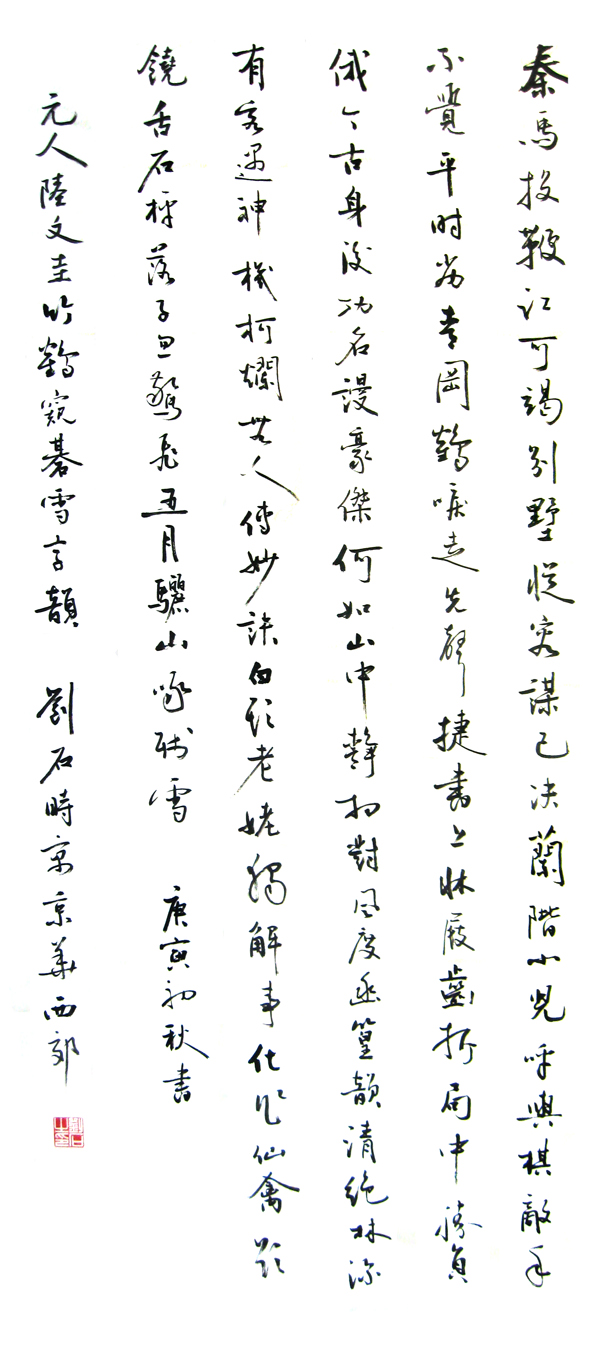 秦馬投鞭江可竭別墅從容謀已決蘭階小兒呼與棋敵手
不覺平时劣青岡鶴唳走先聲捷書上牀屐齒折局中勝負
俄今古身後功名謾豪傑何如山中靜相對風度幽篁韻清絕林深
有客遇神機柯爛無人傳妙訣白頭老姥獨解事化作仙禽頗
饒舌石枰落子忽驚飛五月驪山啄殘雪 庚寅初秋書
元人陸文圭竹鶴窺碁雪字韻 劉石時寓京華西郊